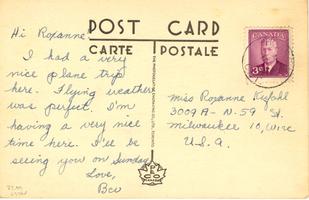 Hi Roxanne:
I had a very
nice plane trip
here. Flying weather
was perfect. I'm
having a very nice
time here. I'll be
seeing you on Sunday
Love,
Bev
POST CARD
CARTE POSTALE
CANADA
3
miss Roxanne
3009A - N-59 St.
milwaukee 10, Wisc
U.S.A.